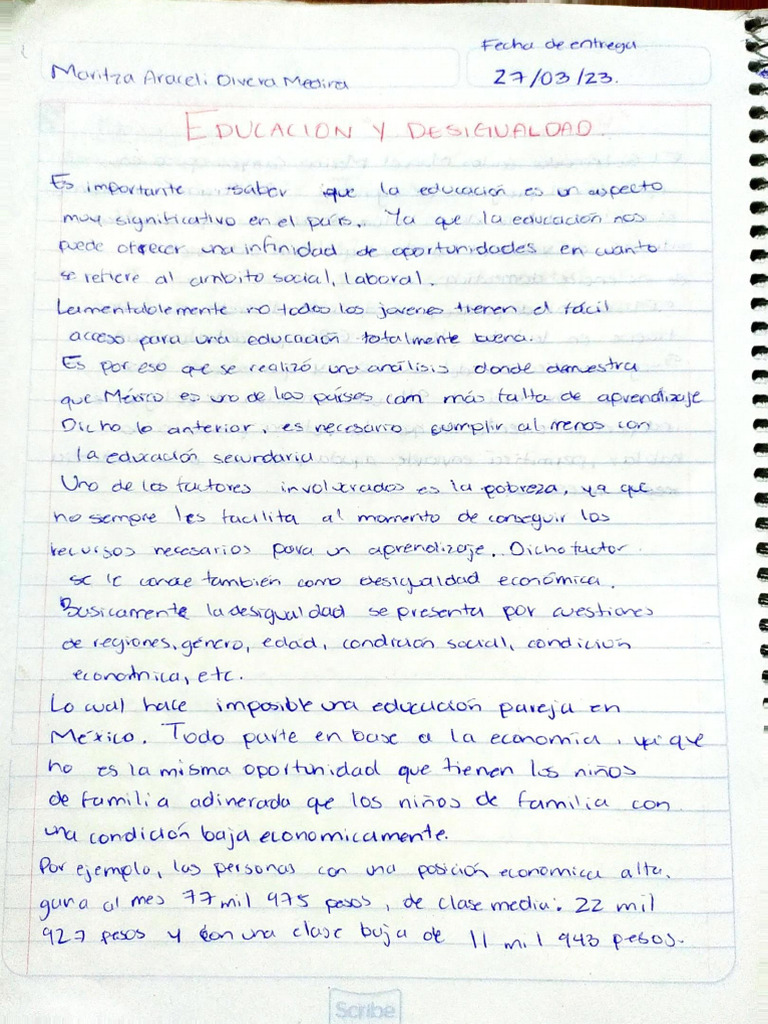 Fecha de entrega
Maritza Araceli Olvera Medina
27/03/23.
EDUCACION Y DESIGUALDAD.
Es importante saber que la educación es un aspecto
muy significativo en el país. Ya que la educación nos
puede ofrecer una infinidad de oportunidades en cuanto
se refiere al ambito social, laboral.
Lamentablemente no todos los jovenes tienen el fácil
acceso para una educación totalmente buena.
Es por eso que se realizó una análisis donde demuestra
que México es uno de los países com más falta de aprendizaje
Dicho lo anterior, es necesario cumplir al menos con
la educación secundaria
Uno de los factores involucrados es la pobreza, ya que
no sempre les facilita al momento de conseguir los
recursos necesarios para un aprendizaje. Dicho factor
se le conoce también como desigualdad económica.
Basicamente la desigualdad se presenta por cuestiones
de regiones, género, edad, condición social, condición
económica, etc.
Lo cual hace imposible una educación pareja en
México. Todo parte en base a la economía, ya que
no es la misma oportunidad que tienen los niños
de familia adinerada que los niños de familia con
una condición baja economicamente.
Por ejemplo, las personas con una posición economica alta.
gana al mes 77 mil 975 pesos, de clase media: 22 mil
927 pesos y con una clase baja de 11 mil 943 pesos.
Scribe